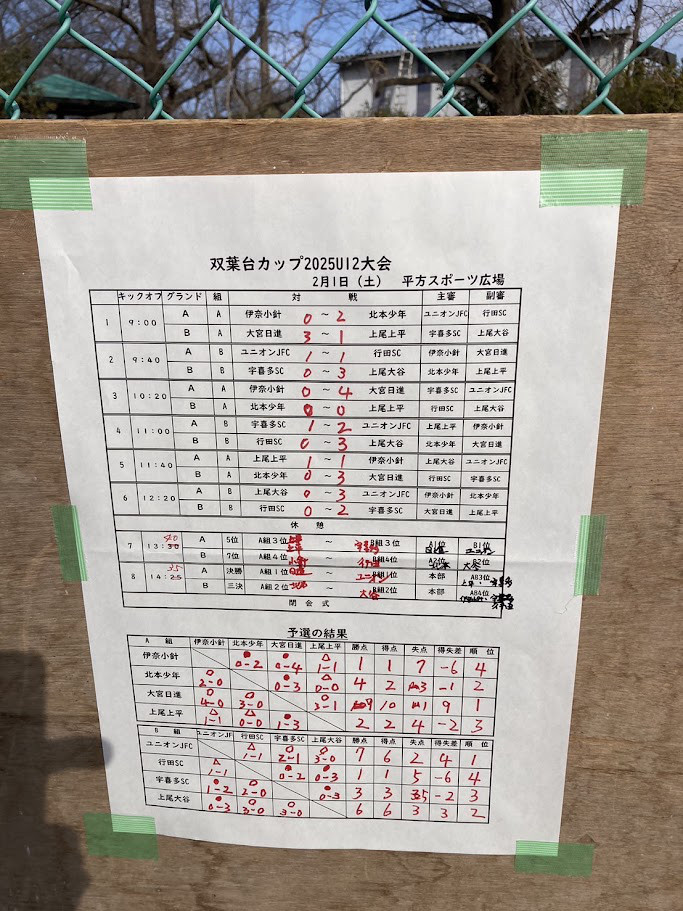 双葉台カップ2025U12大会
2月1日（土） 平方スポーツ広場
キックオフ グランド 組 対 戦 主審 副審
1 9:00 A A 伊奈小針 0 ～ 2 北本少年 ユニオンJFC 行田SC
B A 大宮日進 3 ～ 1 上尾上平 宇喜多SC 上尾大谷
2 9:40 A B ユニオンJFC 1 ～ 1 行田SC 伊奈小針 大宮日進
B B 宇喜多SC 0 ～ 3 上尾大谷 北本少年 上尾上平
3 10:20 A A 伊奈小針 0 ～ 4 大宮日進 宇喜多SC ユニオンJFC
B A 北本少年 0 ～ 0 上尾上平 行田SC 上尾大谷
4 11:00 A B 宇喜多SC 1 ～ 2 ユニオンJFC 上尾上平 伊奈小針
B B 行田SC 0 ～ 3 上尾大谷 北本少年 大宮日進
5 11:40 A A 上尾上平 1 ～ 1 伊奈小針 上尾大谷 ユニオンJFC
B A 北本少年 0 ～ 3 大宮日進 行田SC 宇喜多SC
6 12:20 A B 上尾大谷 0 ～ 3 ユニオンJFC 伊奈小針 北本少年
B B 行田SC 0 ～ 2 宇喜多SC 大宮日進 上尾上平
休 憩
7 13:30 40 A 5位 A組3位 上平 ～ B組3位 宇喜多 A1位 日進 B1位 ユニオン
B 7位 A組4位 小針 ～ B組4位 行田 A2位 北本 B2位 大谷
8 14:25 35 A 決勝 A組1位 日進 ～ B組1位 ユニオン 本部 AB3位 上平・宇喜多
B 三決 A組2位 北本 ～ B組2位 大谷 本部 AB4位
閉 会 式
予選の結果
A 組 伊奈小針 北本少年 大宮日進 上尾上平 勝点 得点 失点 得失差 順 位
伊奈小針 ● 0-2 ● 0-4 △ 1-1 1 1 7 -6 4
北本少年 ○ 2-0 ● 0-3 △ 0-0 4 2 3 -1 2
大宮日進 ○ 4-0 ○ 3-0 ○ 3-1 9 10 1 9 1
上尾上平 △ 1-1 △ 0-0 ● 1-3 2 2 4 -2 3
B 組 ユニオンJF 行田SC 宇喜多SC 上尾大谷 勝点 得点 失点 得失差 順 位
ユニオンJFC △ 1-1 ○ 2-1 ○ 3-0 7 6 2 4 1
行田SC △ 1-1 ● 0-2 ● 0-3 1 1 5 -6 4
宇喜多SC ● 1-2 ○ 2-0 ● 0-3 3 3 5 -2 3
上尾大谷 ● 0-3 ○ 3-0 ○ 3-0 6 6 3 3 2